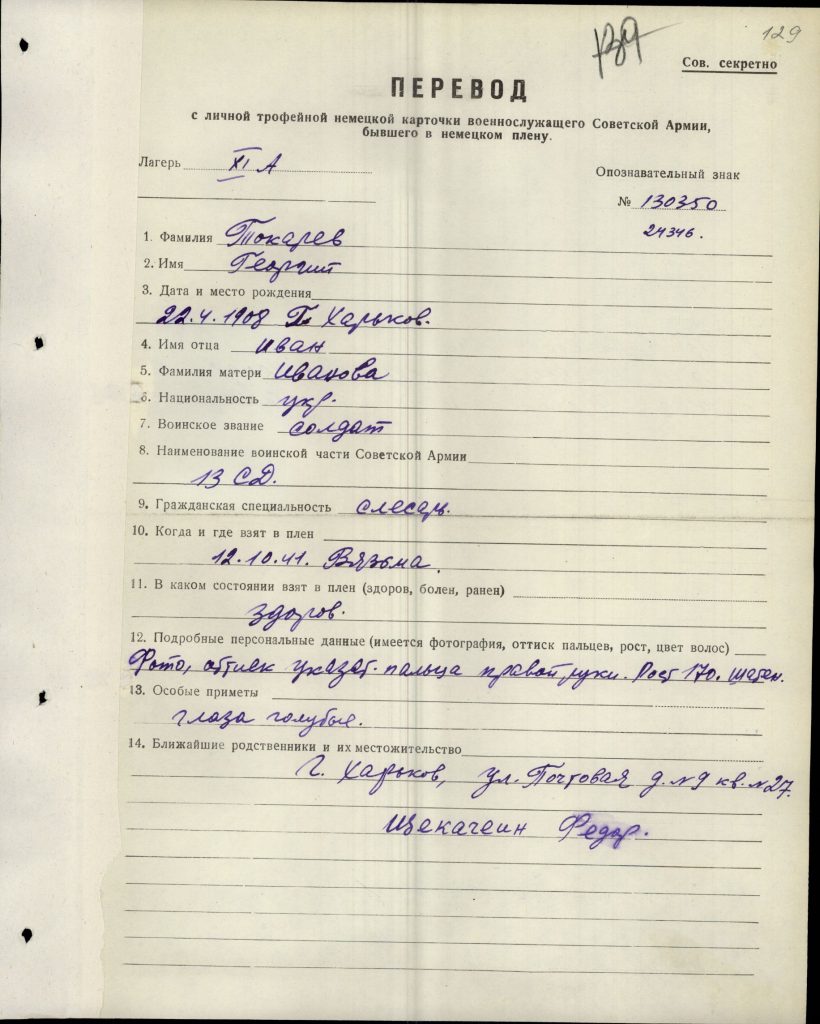 129
139
Сов. секретно
ПЕРЕВОД
с личной трофейной немецкой карточки военнослужащего Советской Армии,
бывшего в немецком плену.
Лагерь XI А
Опознавательный знак
№ 130350
24346.
1. Фамилия Токарев
2. Имя Георгий
3. Дата и место рождения
22.4.1908 Г. Харьков.
4. Имя отца Иван
5. Фамилия матери Иванова
6. Национальность укр.
7. Воинское звание солдат
8. Наименование воинской части Советской Армии
13 СД.
9. Гражданская специальность слесарь.
10. Когда и где взят в плен
12.10.41. Вязьма.
11. В каком состоянии взят в плен (здоров, болен, ранен)
здоров.
12. Подробные персональные данные (имеется фотография, оттиск пальцев, рост, цвет волос)
Фото, оттиск указат. пальца правой руки. Рост 170. шатен.
13. Особые приметы
глаза голубые.
14. Ближайшие родственники и их местожительство
г. Харьков, ул. Почтовая д. №9 кв. №27.
Федор.